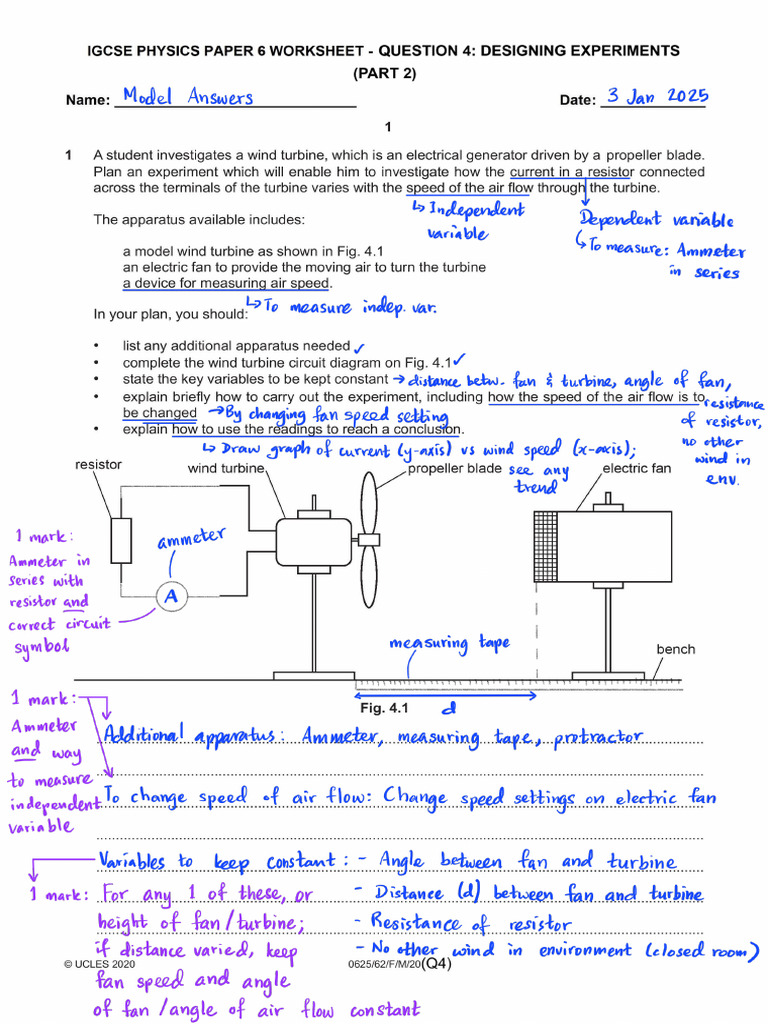 IGCSE PHYSICS PAPER 6 WORKSHEET - QUESTION 4: DESIGNING EXPERIMENTS
(PART 2)
Name: Model Answers Date: 3 Jan 2025
1
1 A student investigates a wind turbine, which is an electrical generator driven by a propeller blade.
Plan an experiment which will enable him to investigate how the current in a resistor connected
across the terminals of the turbine varies with the speed of the air flow through the turbine.
↳ Independent
variable
Dependent variable
↳ To measure: Ammeter
in series
The apparatus available includes:
a model wind turbine as shown in Fig. 4.1
an electric fan to provide the moving air to turn the turbine
a device for measuring air speed.
↳ To measure indep. var.
In your plan, you should:
• list any additional apparatus needed ✓
• complete the wind turbine circuit diagram on Fig. 4.1 ✓
• state the key variables to be kept constant → distance betw. fan & turbine, angle of fan,
resistance
of resistor,
no other
wind in
env.
• explain briefly how to carry out the experiment, including how the speed of the air flow is to
be changed → By changing fan speed setting
• explain how to use the readings to reach a conclusion.
↳ Draw graph of current (y-axis) vs wind speed (x-axis);
see any
trend
resistor
wind turbine
propeller blade
electric fan
ammeter
A
1 mark:
Ammeter in
series with
resistor and
correct circuit
symbol
measuring tape
bench
d
Fig. 4.1
1 mark:
Ammeter
and way
to measure
independent
variable
Additional apparatus: Ammeter, measuring tape, protractor
To change speed of air flow: Change speed settings on electric fan
Variables to keep constant: - Angle between fan and turbine
- Distance (d) between fan and turbine
- Resistance of resistor
- No other wind in environment (closed room)
1 mark: For any 1 of these, or
height of fan/turbine;
if distance varied, keep
fan speed and angle
of fan/angle of air flow constant
© UCLES 2020 0625/62/F/M/20(Q4)